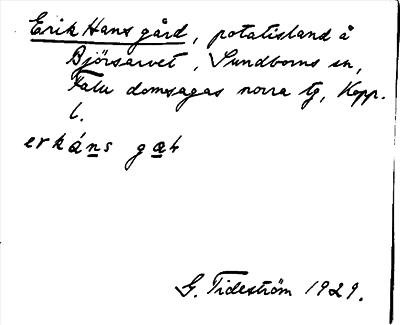 Erik Hans gård, potatisland å
Björsarvet, Sundborns sn,
Falu domsagas norra tg, Kopp.
l.
erkáns gaḥ
G. Tideström 1929.